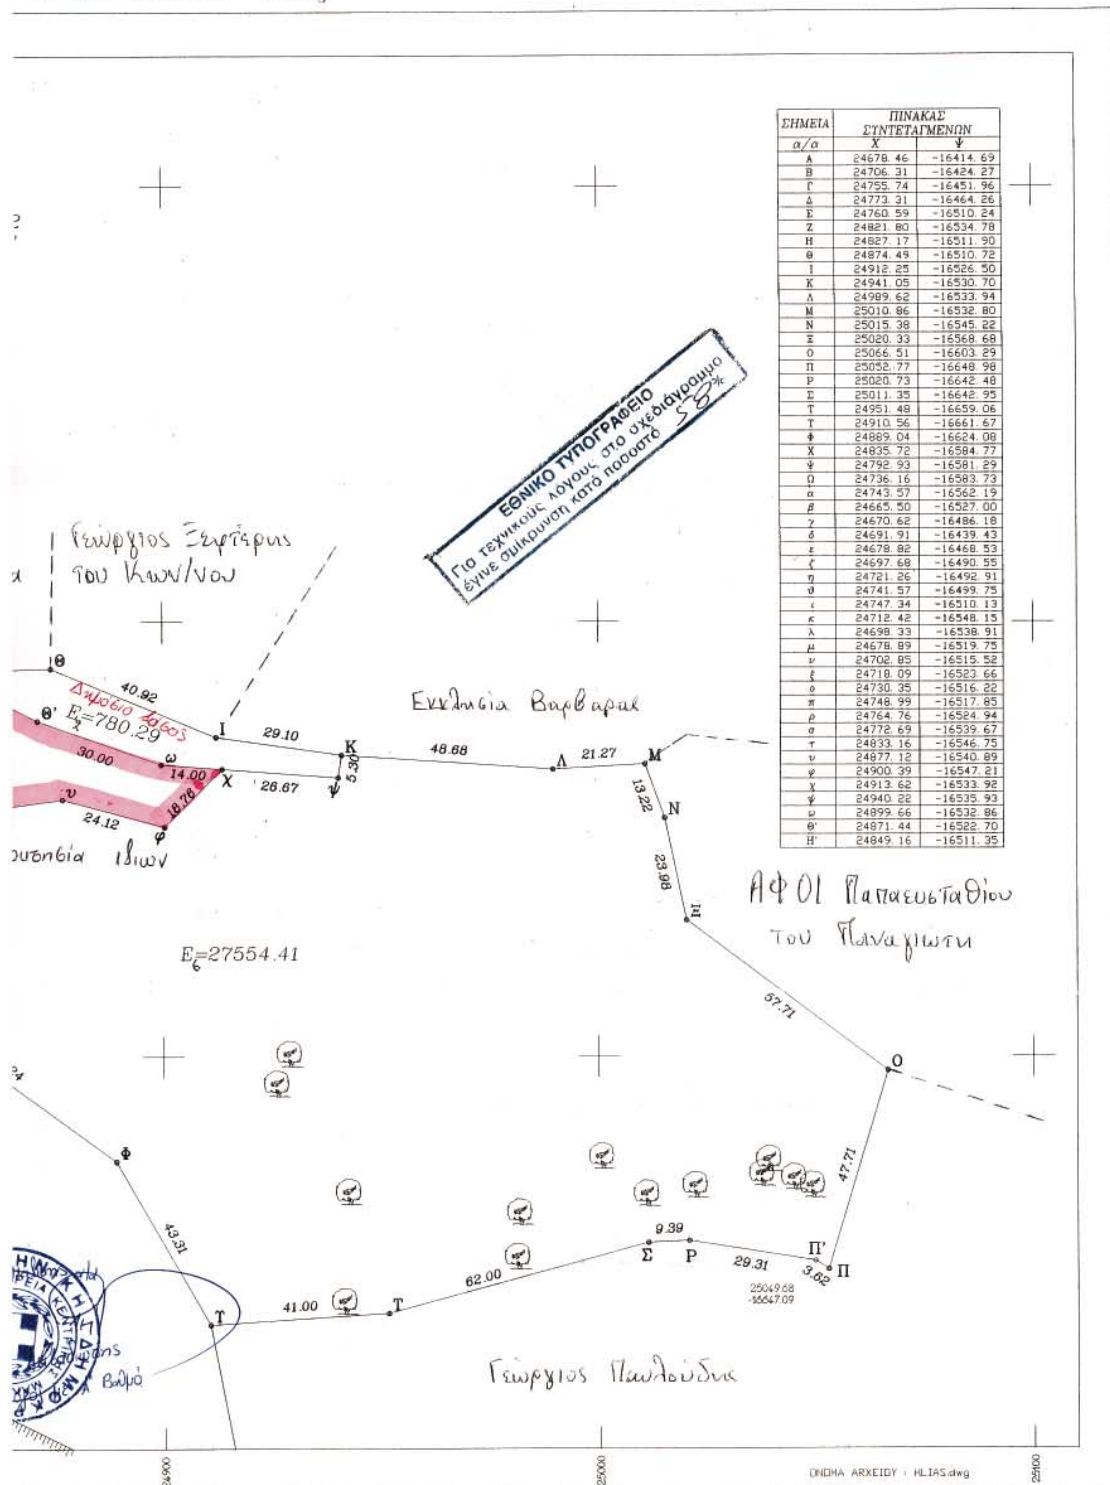 ΣΗΜΕΙΑ ΠΙΝΑΚΑΣ ΣΥΝΤΕΤΑΓΜΕΝΩΝ
α/α Χ Ψ
Α 24678.46 -16414.69
Β 24706.31 -16424.27
Γ 24755.74 -16451.96
Δ 24773.31 -16464.26
Ε 24760.59 -16510.24
Ζ 24821.80 -16534.78
Η 24827.17 -16511.90
Θ 24874.49 -16510.72
Ι 24912.25 -16526.50
Κ 24941.05 -16530.70
Λ 24989.62 -16533.94
Μ 25010.86 -16532.80
Ν 25015.38 -16545.22
Ξ 25020.33 -16568.68
Ο 25066.51 -16603.29
Π 25052.77 -16648.98
Ρ 25020.73 -16642.48
Σ 25011.35 -16642.95
Τ 24951.48 -16659.06
Υ 24910.56 -16661.67
Φ 24889.04 -16624.08
Χ 24835.72 -16584.77
Ψ 24792.93 -16581.29
Ω 24736.16 -16583.73
α 24743.57 -16562.19
β 24665.50 -16527.00
γ 24670.62 -16486.18
δ 24691.91 -16439.43
ε 24678.82 -16468.53
ζ 24697.68 -16490.55
η 24721.26 -16492.91
θ 24741.57 -16499.75
ι 24747.34 -16510.13
κ 24712.42 -16548.15
λ 24698.33 -16538.91
μ 24678.89 -16519.75
ν 24702.85 -16515.52
ξ 24718.09 -16523.66
ο 24730.35 -16516.22
π 24748.99 -16517.85
ρ 24764.76 -16524.94
σ 24772.69 -16539.67
τ 24833.16 -16546.75
υ 24877.12 -16540.89
φ 24900.39 -16547.21
χ 24913.62 -16533.92
ψ 24940.22 -16535.93
ω 24899.66 -16532.86
Θ' 24871.44 -16522.70
Η' 24849.16 -16511.35
ΕΘΝΙΚΟ ΤΥΠΟΓΡΑΦΕΙΟ
Για τεχνικούς λόγους στο σχεδιάγραμμο
έγινε σμίκρυνση κατά ποσοστό 58%
Γεώργιος Ξεφτέρης
του Κων/νου
Θ
40.92
Δημόσιο δάσος
Θ'
E2=780.29
Ι
29.10
Κ
Εκκλησία Βαρβάρας
48.68
Λ
21.27
Μ
30.00
ω
14.00
χ
26.67
5.30
ψ
18.76
υ
24.12
φ
ιδίων
13.22
Ν
23.98
Ξ
ΑΦΟΙ Παπαευσταθίου
του Παναγιώτη
E6=27554.41
57.71
Ο
47.71
Φ
43.31
Σ
9.39
Ρ
29.31
Π'
3.62
Π
25049.68
-16647.09
62.00
Τ
41.00
Υ
Γεώργιος Παυλούδης
Βαθμό
24900
25000
25100
ΟΝΟΜΑ ΑΡΧΕΙΟΥ : HLIAS.dwg